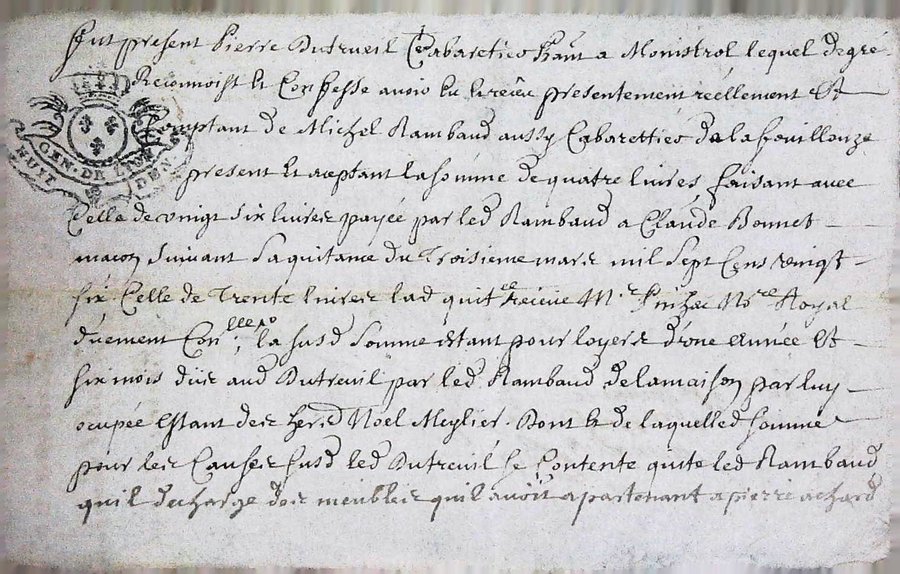 Fut present Pierre Dutreuil Cabarettier hant a Monistrol lequel de gré
Reconnoist et Confesse avoir eu et receu presentement réellement Et
Comptant de Michel Rambaud aussy Cabarettier de la fouillouze
GEN. DE LYON
HUIT DEN.
present et aceptant la somme de quatre livres faisant avec
Celle de vingt six livres payée par led Rambaud a Claude Bonnet
macon suivant sa quitance du Troisieme mars mil sept Cens vingt
six Celle de Trente livres lad quitce Receue Mre Nre Royal
duement Conllée la susd somme estant pour loyers d'une année Et
six mois dus aud Dutreuil par led Rambaud de la maison par luy
ocupée Estant des hers Noel Meylier. Dont & de laquelle somme
pour les Causes susd led Dutreuil se Contente quite led Rambaud
quil decharge des meubles quil avoit apartenant a pierre achard